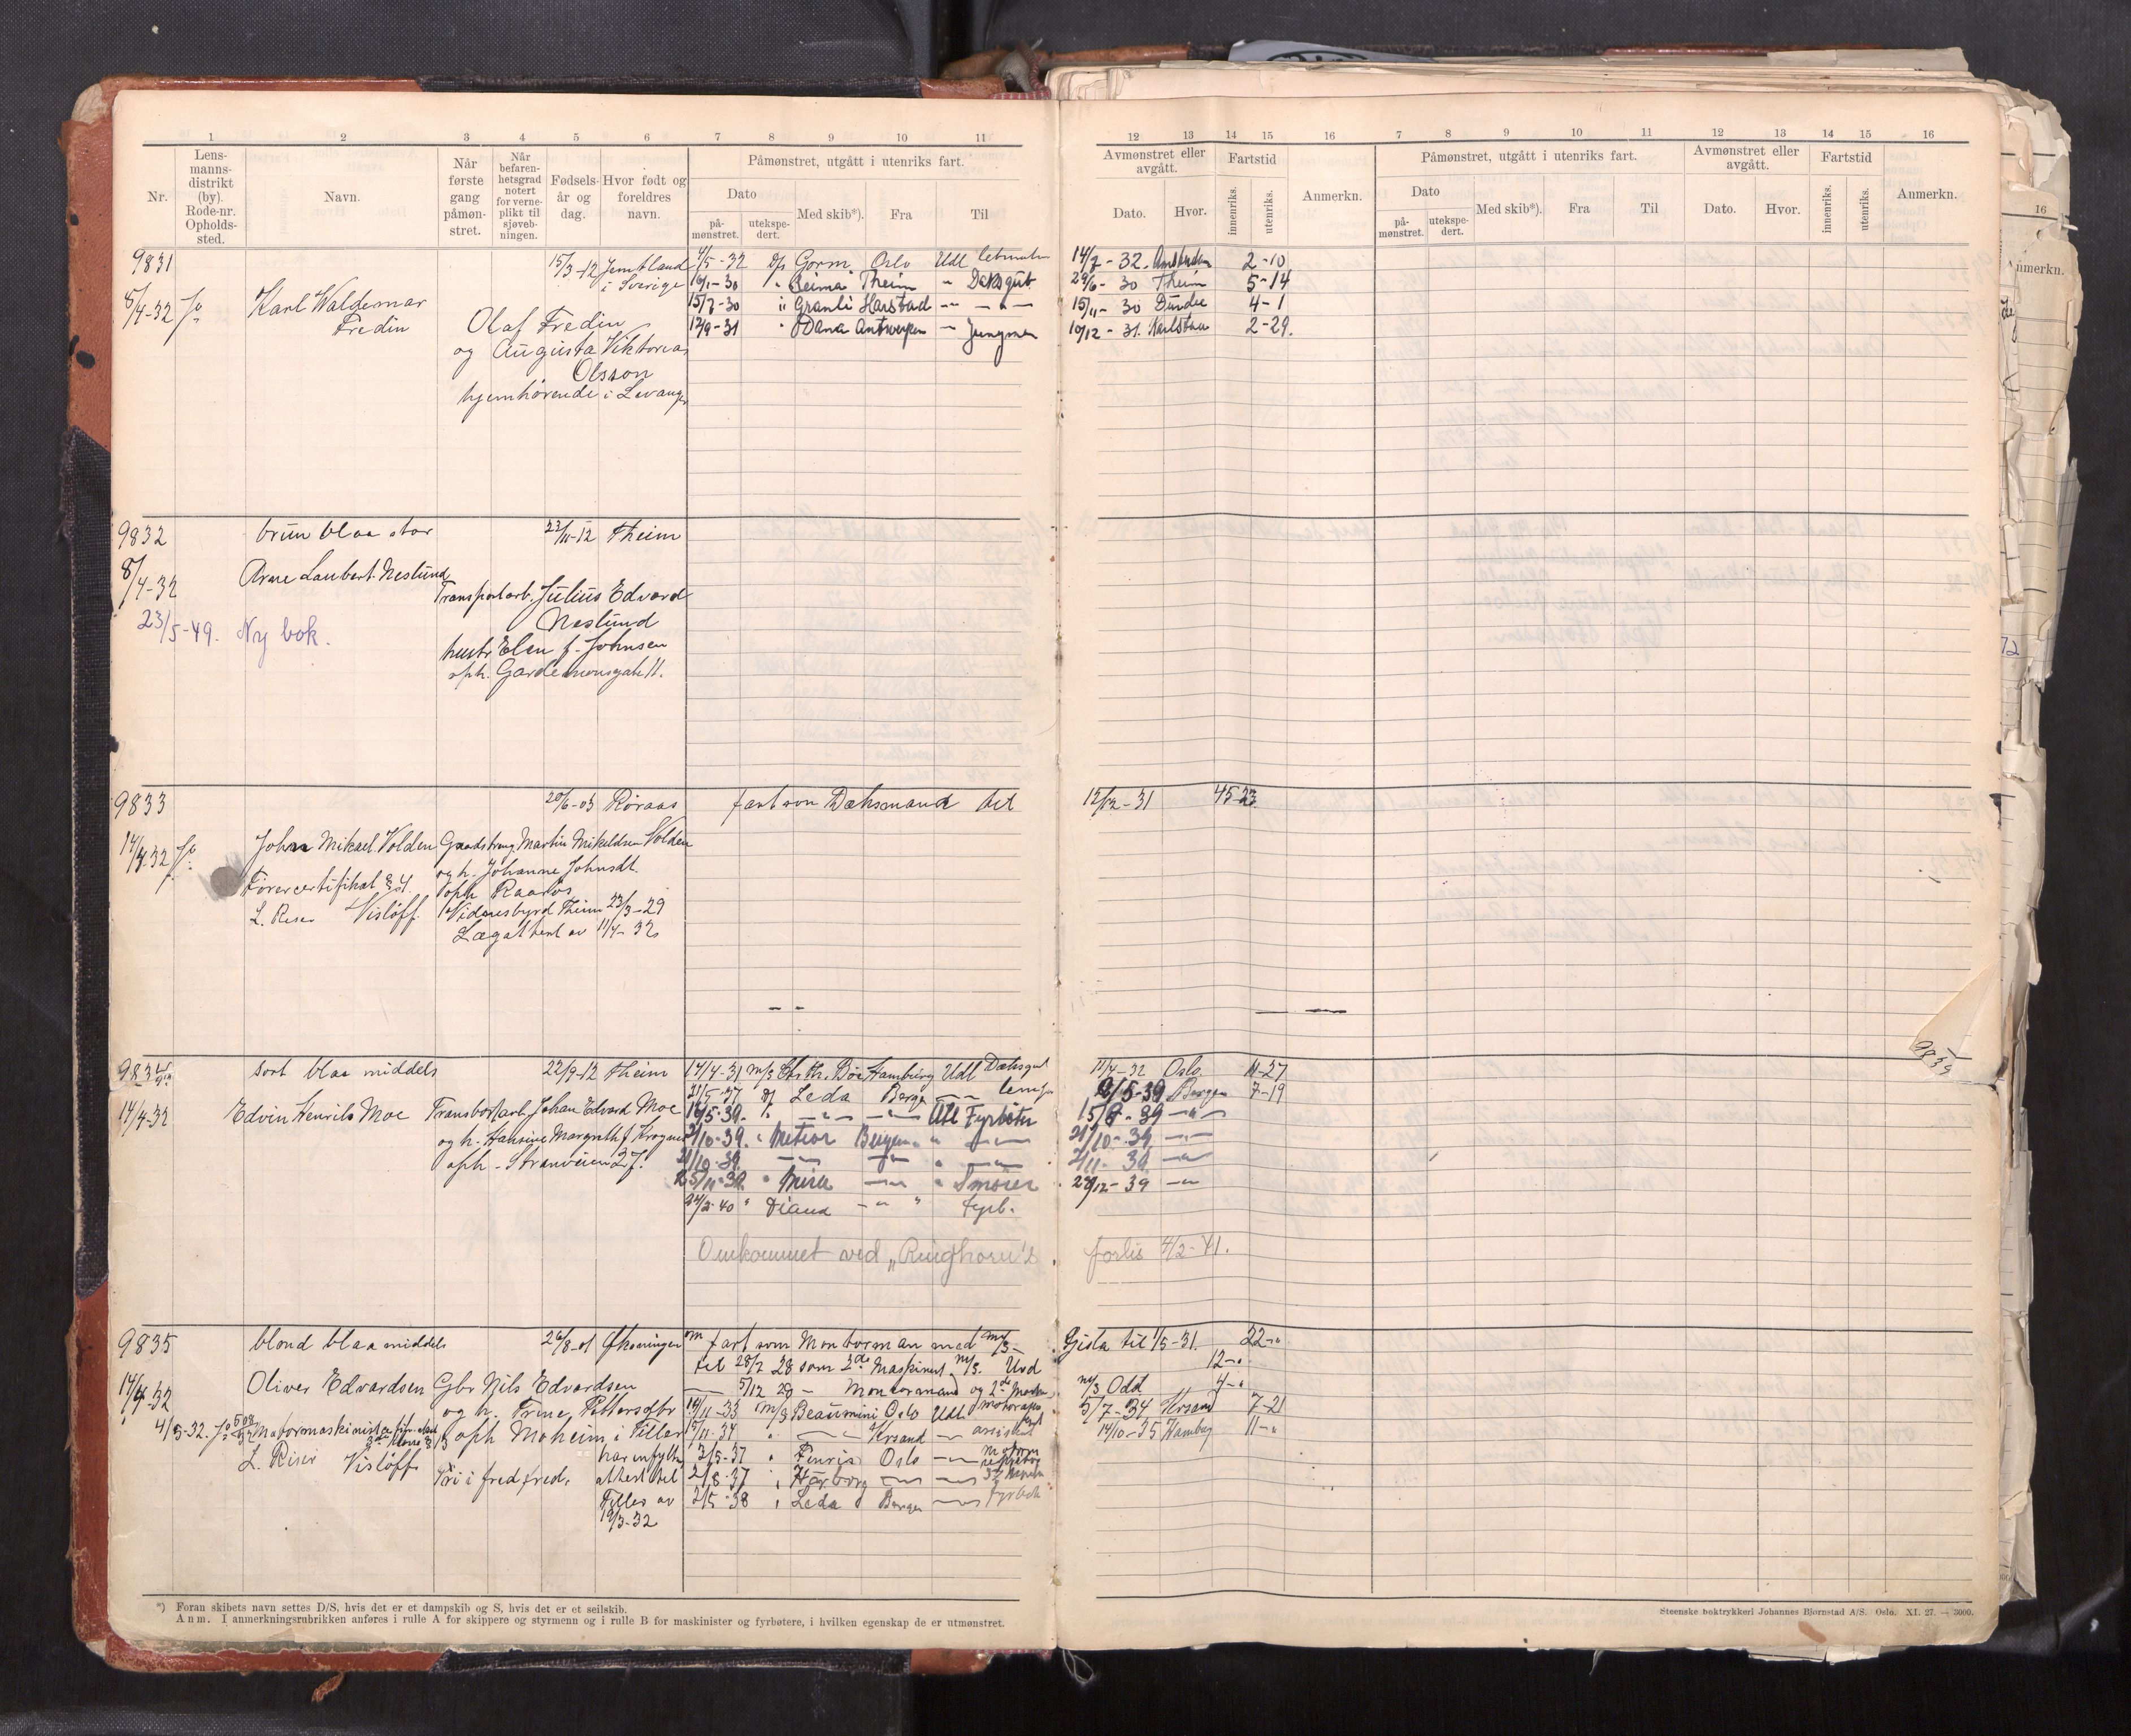 1 2 3 4 5 6 7 8 9 10 11
Nr.
Lens-
manns-
distrikt
(by).
Rode-nr.
Opholds-
sted.
Navn.
Når
første
gang
påmøn-
stret.
Når
befaren-
hetsgrad
notert
for verne-
plikt til
sjøveb-
ningen.
Fødsels-
år og
dag.
Hvor født og
foreldres
navn.
Påmønstret, utgått i utenriks fart.
Dato
på-
mønstret.
utekspe-
dert.
Med skib*).
Fra
Til
9831 15/3-12 Jemtland 4/5-32 D/s Gorm Oslo Udl letmatr
i Sverige 16/1-30 " Reima Theim " Dæksgut
8/4-32 Karl Waldemar 15/7-30 " Granli Harstad
Fredin Olaf Fredin 12/9-31 " Dana Antwerpen Jungmn
og Augusta Viktoria
Olsson
hjemhørende i Levanger
9832 brun blaa stor 23/11-12 Theim
8/4-32 Arne Laubert Neslund
Transportarb. Julius Edvard
Neslund
23/5-49. Ny bok.
hustr Elen f. Johnsen
oph. Gardemoensgate 11.
9833 20/6-03 Røraas fart som Dæksmand til
14/4-32 Johan Mikael Volden Gaardsbrug. Martin Mikeldsen Volden
og h. Johanne Johnsdt.
Førercertifikat § 4. oph Raaros
L. Riser Vislöff. Vidnesbyrd Theim 23/3-29
Lægattest av 11/4-32
9834 sort blaa middels 22/9-12 Theim 14/4-31 m/s Hamburg Udl Dæksgut
21/5-37 D/s Leda Berge
14/4-32 Edvin Henrik Moe Transportarb. Johan Edvard Moe 16/5-39. Utl Fyrbøter
og h. Hansine Margrethe f. Krognes 2/10-39. " Meteor Bergen
oph - Stranveien 27. 21/10-39.
25/11-39 " Mira Smører
24/2-40 " Diana Fyrb.
Omkommet ved „Ringhorn's
9835 blond blaa middels 26/8-01 fart som Motorman med m/s
til 28/7 28 som 2de Maskinist m/s. Urd
14/4-32 Oliver Edvardsen Gbr Nils Edvardsen 5/12 29 - Motormand og 2de Mask
og h. Trine Pettersdtr 14/11-33 m/s Beaumini Oslo Udl motorass
4/5-32. Motormaskinist oph Moheim i Tiller 15/11-34 Krsand assistent
L. Riser Vislöff har innfylt 3/5-37 " Fenris Oslo
Fri i fred fred. attest til 2/8-37 " Harborg
Tiller av 2/5-38 " Leda Bergen Fyrbøt
19/3-32
*) Foran skibets navn settes D/S, hvis det er et dampskib og S, hvis det er et seilskib.
Anm. I anmerkningsrubrikken anføres i rulle A for skippere og styrmenn og i rulle B for maskinister og fyrbøtere, i hvilken egenskap de er utmønstret.
12 13 14 15 16 7 8 9 10 11 12 13 14 15 16
Avmønstret eller
avgått.
Dato.
Hvor.
Fartstid
innenriks.
utenriks.
Anmerkn.
Påmønstret, utgått i utenriks fart.
Dato
på-
mønstret.
utekspe-
dert.
Med skib*).
Fra
Til
Avmønstret eller
avgått.
Dato.
Hvor.
Fartstid
innenriks.
utenriks.
Anmerkn.
16
14/7-32. Amsterdam 2-10
29/6-30 Theim 5-14
15/11-30 Dundee 4-1
10/12-31. Karlstad 2-29.
12/12-31 45-23
11/4-32 Oslo. 11-27
2/5-39 Bergen 7-19
15/8-39
21/10-39
2/11-39
28/12-39
forlis 4/2-41.
9839
Gisla til 1/5-31. 22-"
12-"
m/s Odd 4-"
5/7-34 Krsand 7-21
14/10-35 Hamburg 11-"
Steenske boktrykkeri Johannes Bjørnstad A/S. Oslo. XI. 27. — 3000.